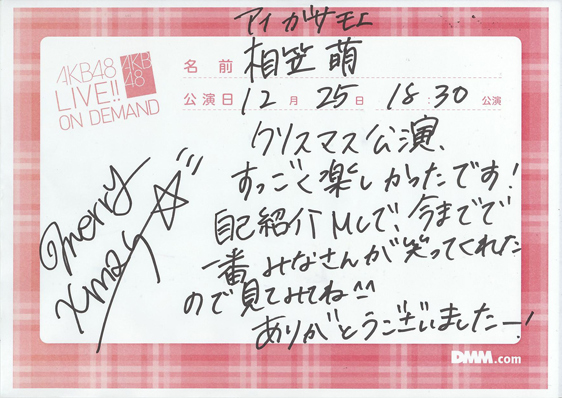 アイガサモエ
AKB48
LIVE!!
ON DEMAND
AKB
48
名前 相笠萌
公演日 12月 25日 18:30 公演
クリスマス公演、
すっごく楽しかったです!
自己紹介MCで、今までで
一番みなさんが笑ってくれた
ので見てみてね^^
ありがとうございましたー!
Merry
Xmas☆
DMM.com